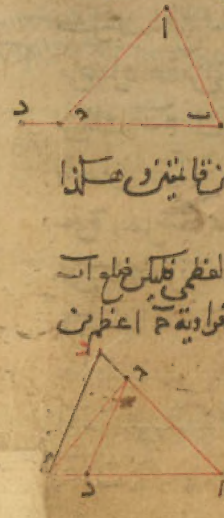 ا
د ح ب
قائمتين وهكذا
العظمى فليكن ضلع اب
فزاوية ح اعظم من
ح
د ا